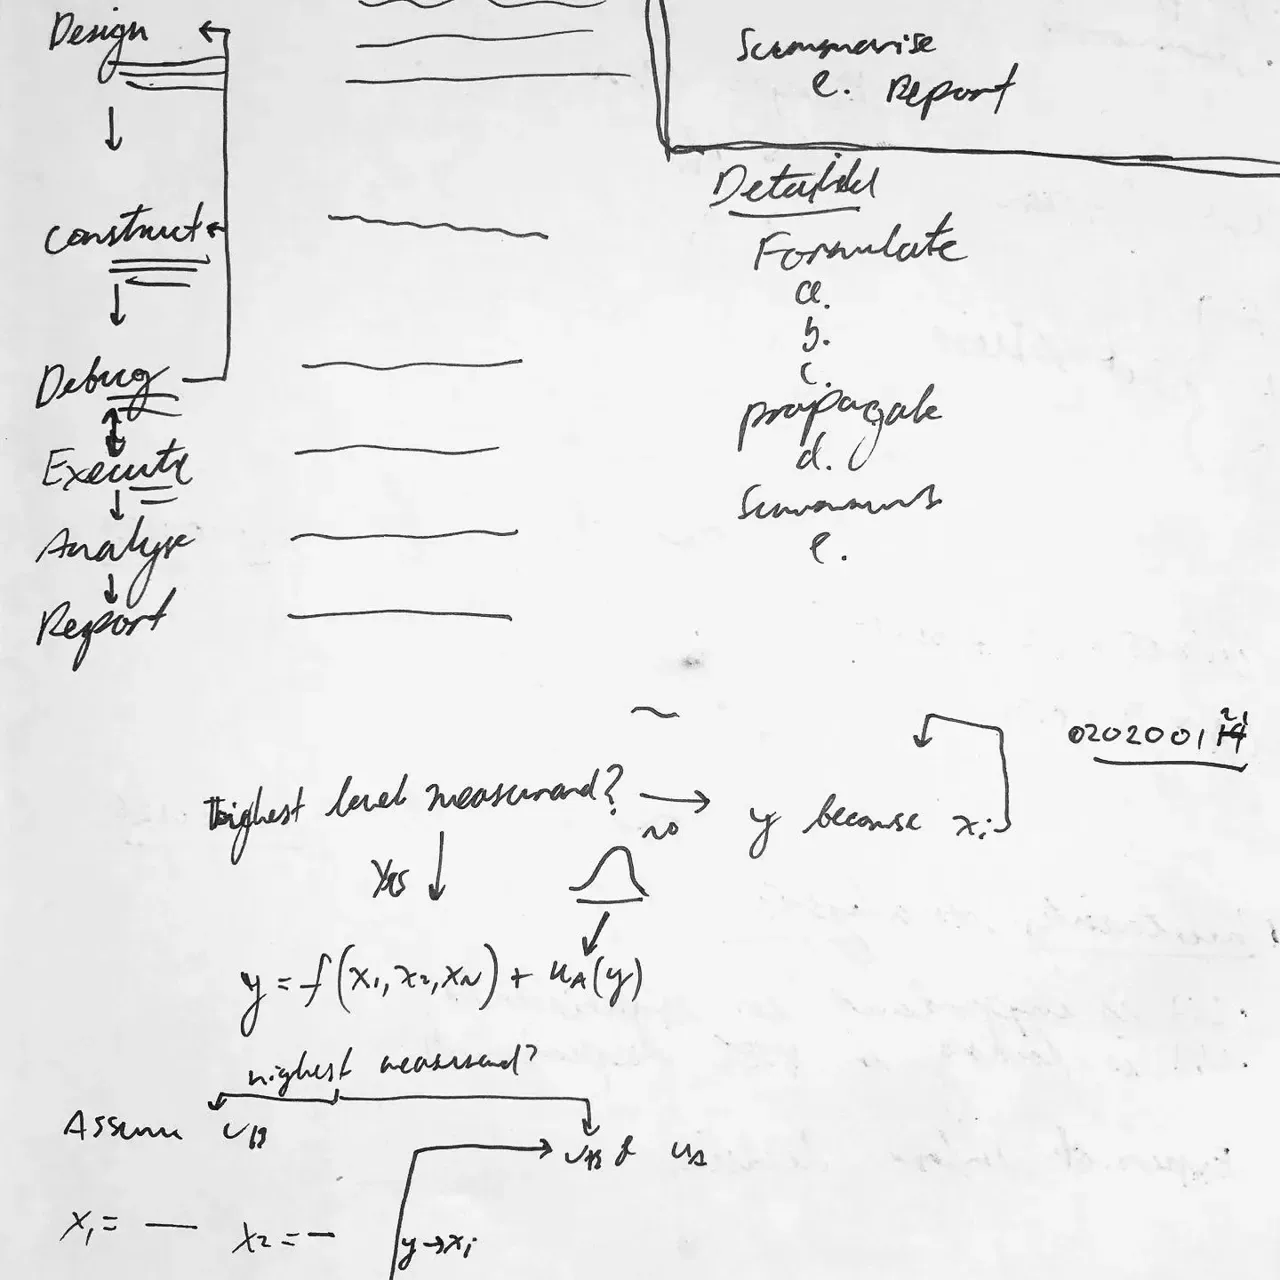 Design
construct
Debug
Execute
Analyse
Report
Summarise
e. Report
Detailed
Formulate
a.
b.
c.
propagate
d.
e.
0202001 21
highest level measurand?
no
y because xi
Yes
y = f(x1, x2, xN) + uA(y)
highest measurand?
Assume uB
uB & uA
x1 = —
x2 = —
y → xi